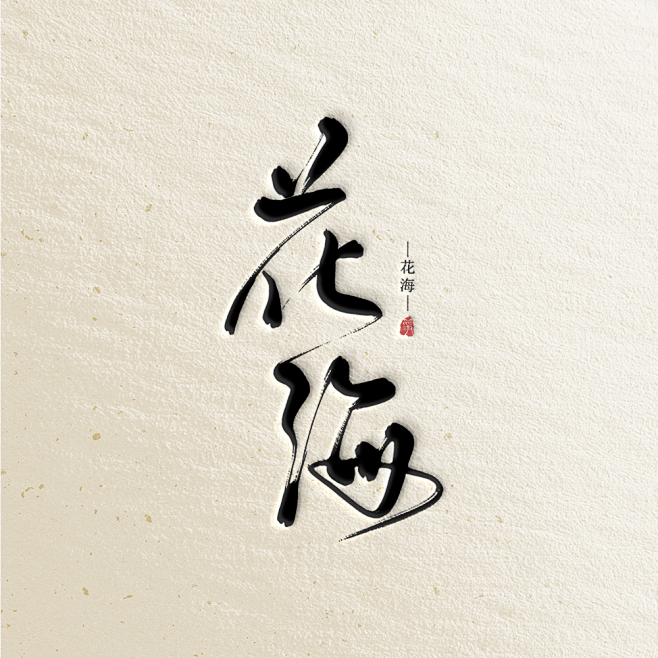 花海
花海